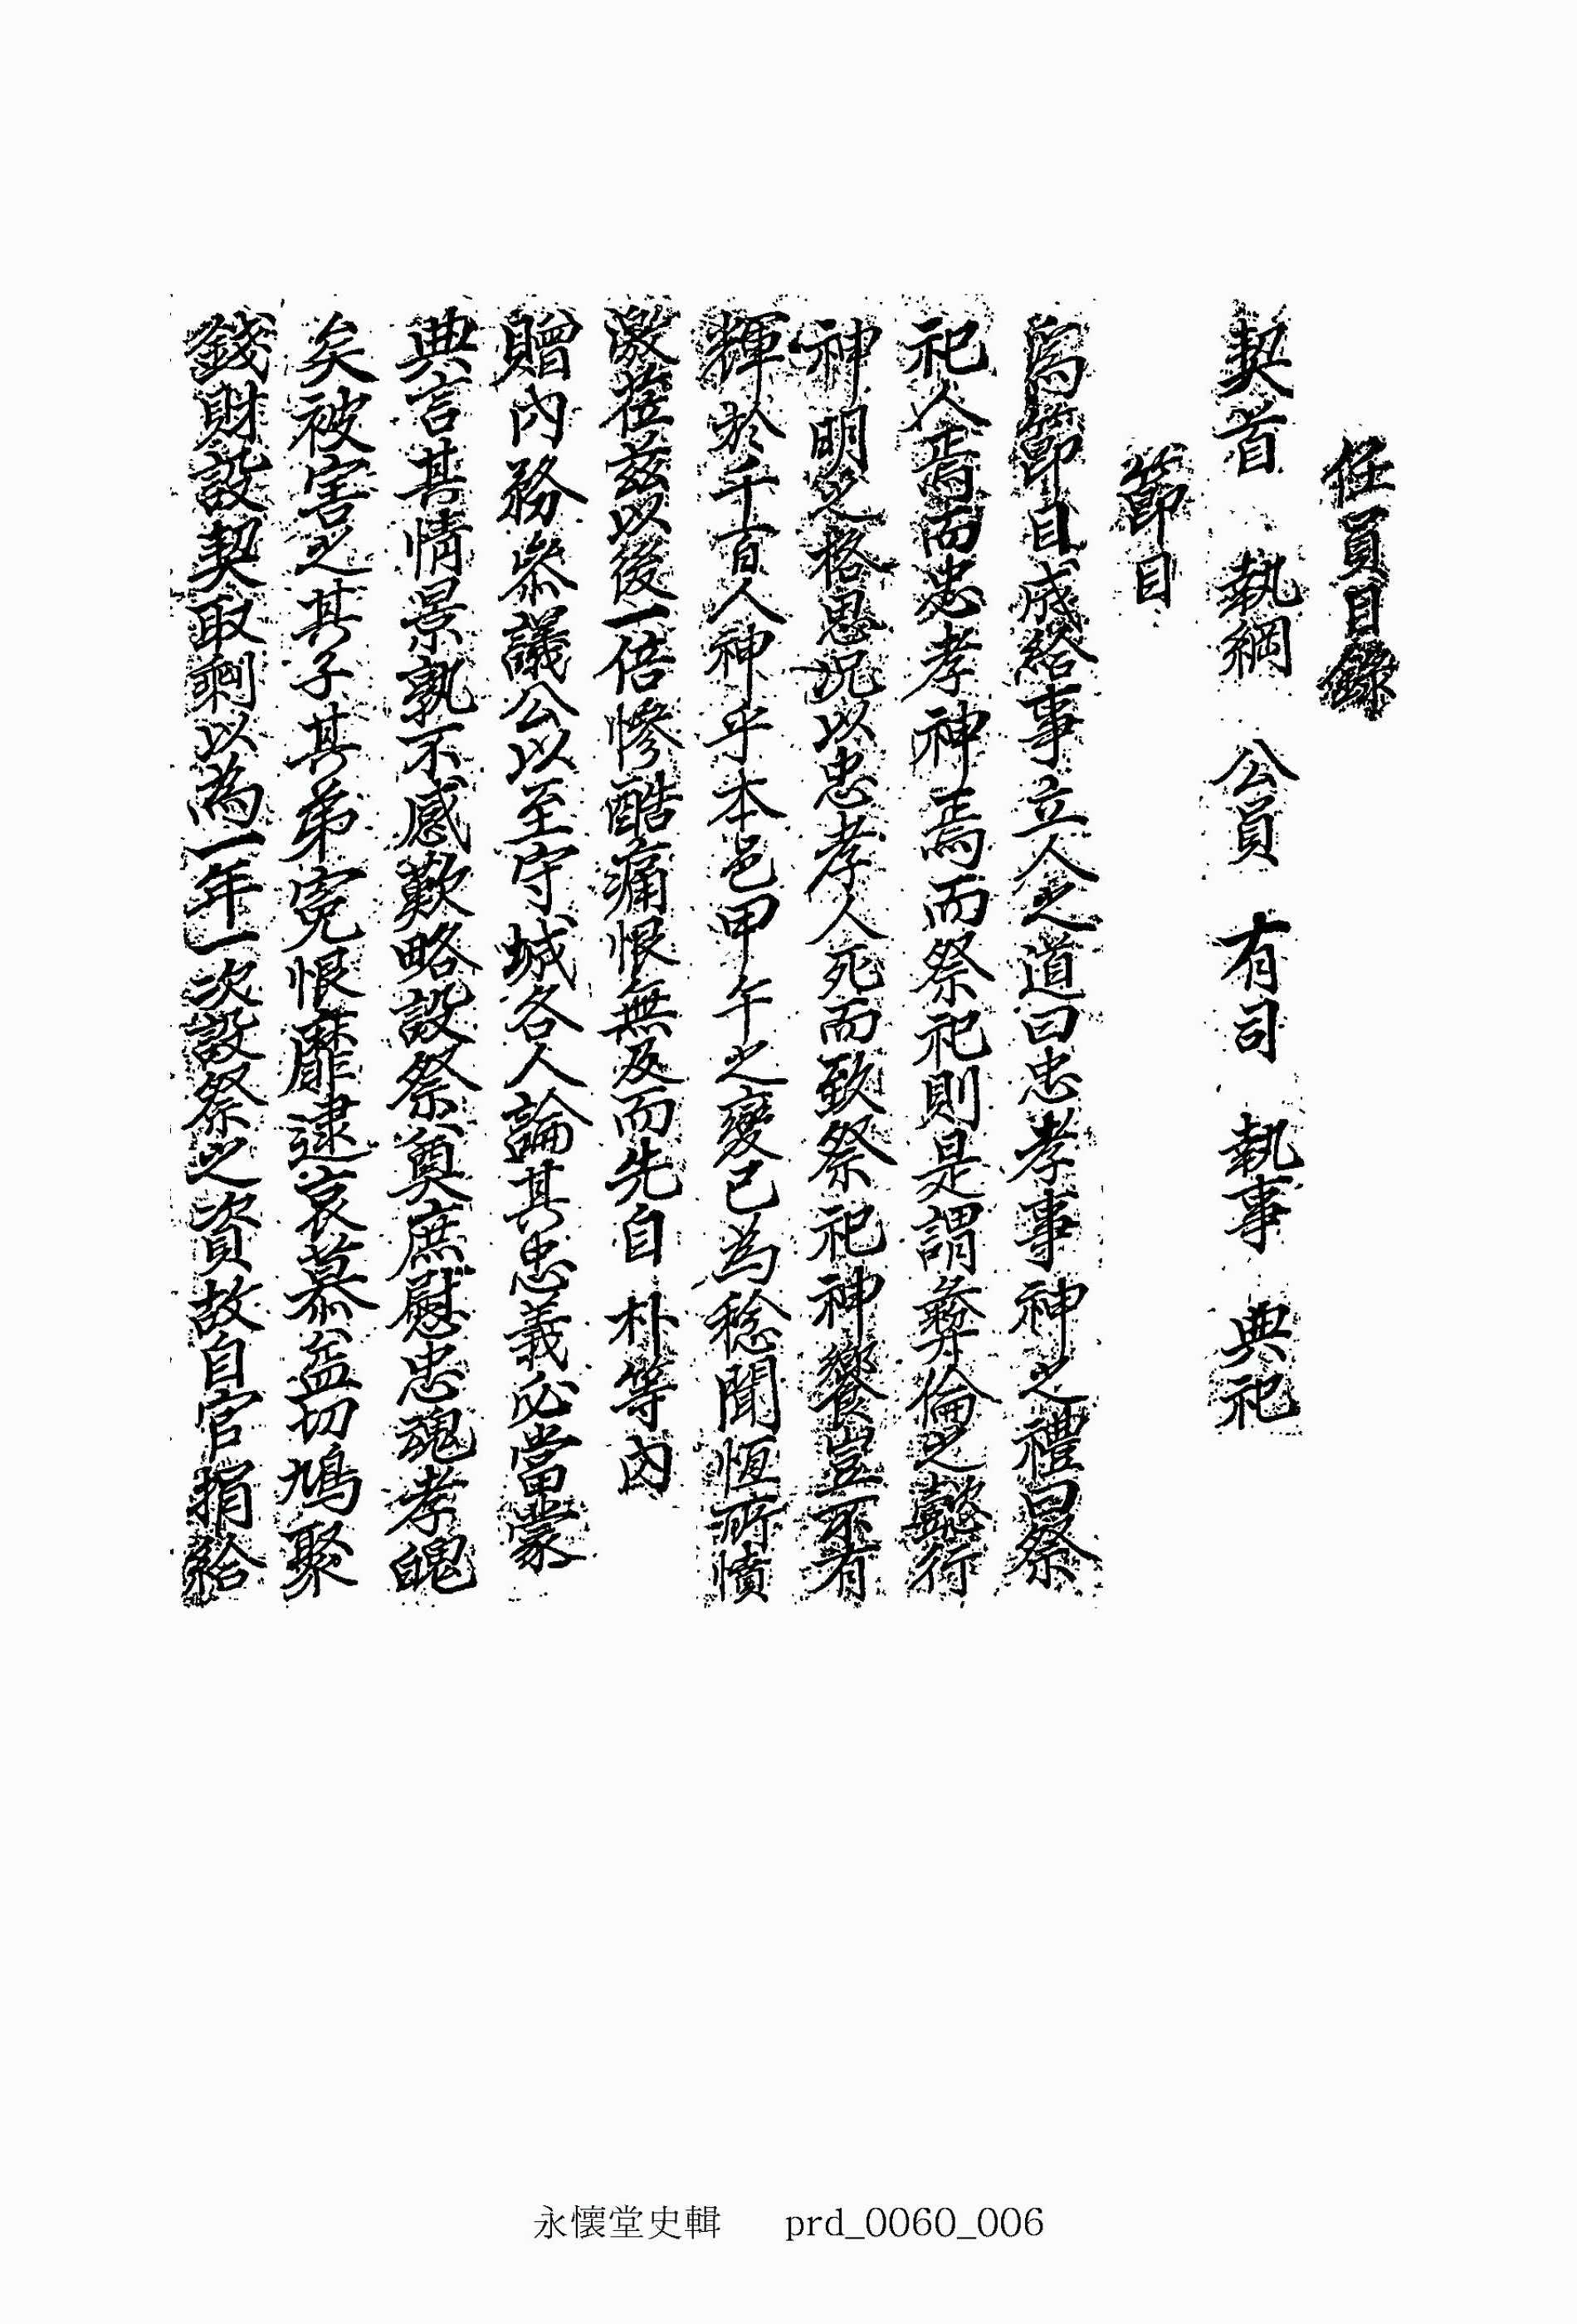 任員目錄
契首 執綱 公員 有司 執事 典祀
節目
爲節目成給事立人之道曰忠孝事神之禮曰祭
祀人焉而忠孝神焉而祭祀則是謂彛倫之懿行
神明之格思况以忠孝人死而致祭祀神饗豈不有
輝於千百人神乎本邑甲午之變已爲稔聞恆所憤
激莅茲以後一倍慘酷痛恨無及而先自 朴等內
贈內務參議公以至守城各人論其忠義必當蒙
典言其情景孰不感歎略設祭奠庶慰忠魂孝魄
矣被害之其子其弟寃恨靡逮哀慕益切鳩聚
錢財設契取剩以為一年一次設祭之資故自官捐給
永懷堂史輯 prd_0060_006